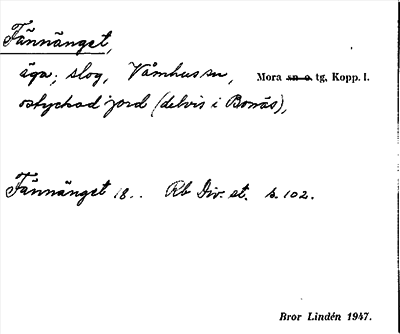 Fännänget,
äga; slog, Våmhus sn, Mora sn o. tg, Kopp. l.
ostyckad jord (delvis i Bonäs),
Fännänget 18.. Rb Div. st. s. 102.
Bror Lindén 1947.